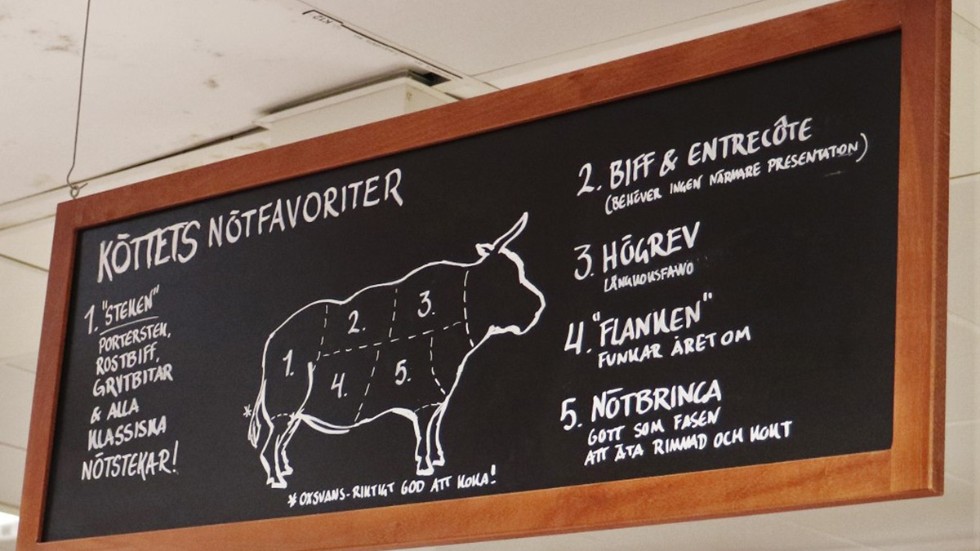 KÖTTETS NÖTFAVORITER
1. "STEKEN"
PORTERSTEK,
ROSTBIFF,
GRYTBITAR
& ALLA
KLASSISKA
NÖTSTEKAR!
1.
2.
3.
4.
5.
*
*OXSVANS-RIKTIGT GOD ATT KOKA!
2. BIFF & ENTRECÔTE
(BEHÖVER INGEN NÄRMARE PRESENTATION)
3. HÖGREV
LÅNGKOKSFAVO
4. "FLANKEN"
FUNKAR ÅRET OM
5. NÖTBRINGA
GOTT SOM FASEN
ATT ÄTA RIMMAD OCH KOKT